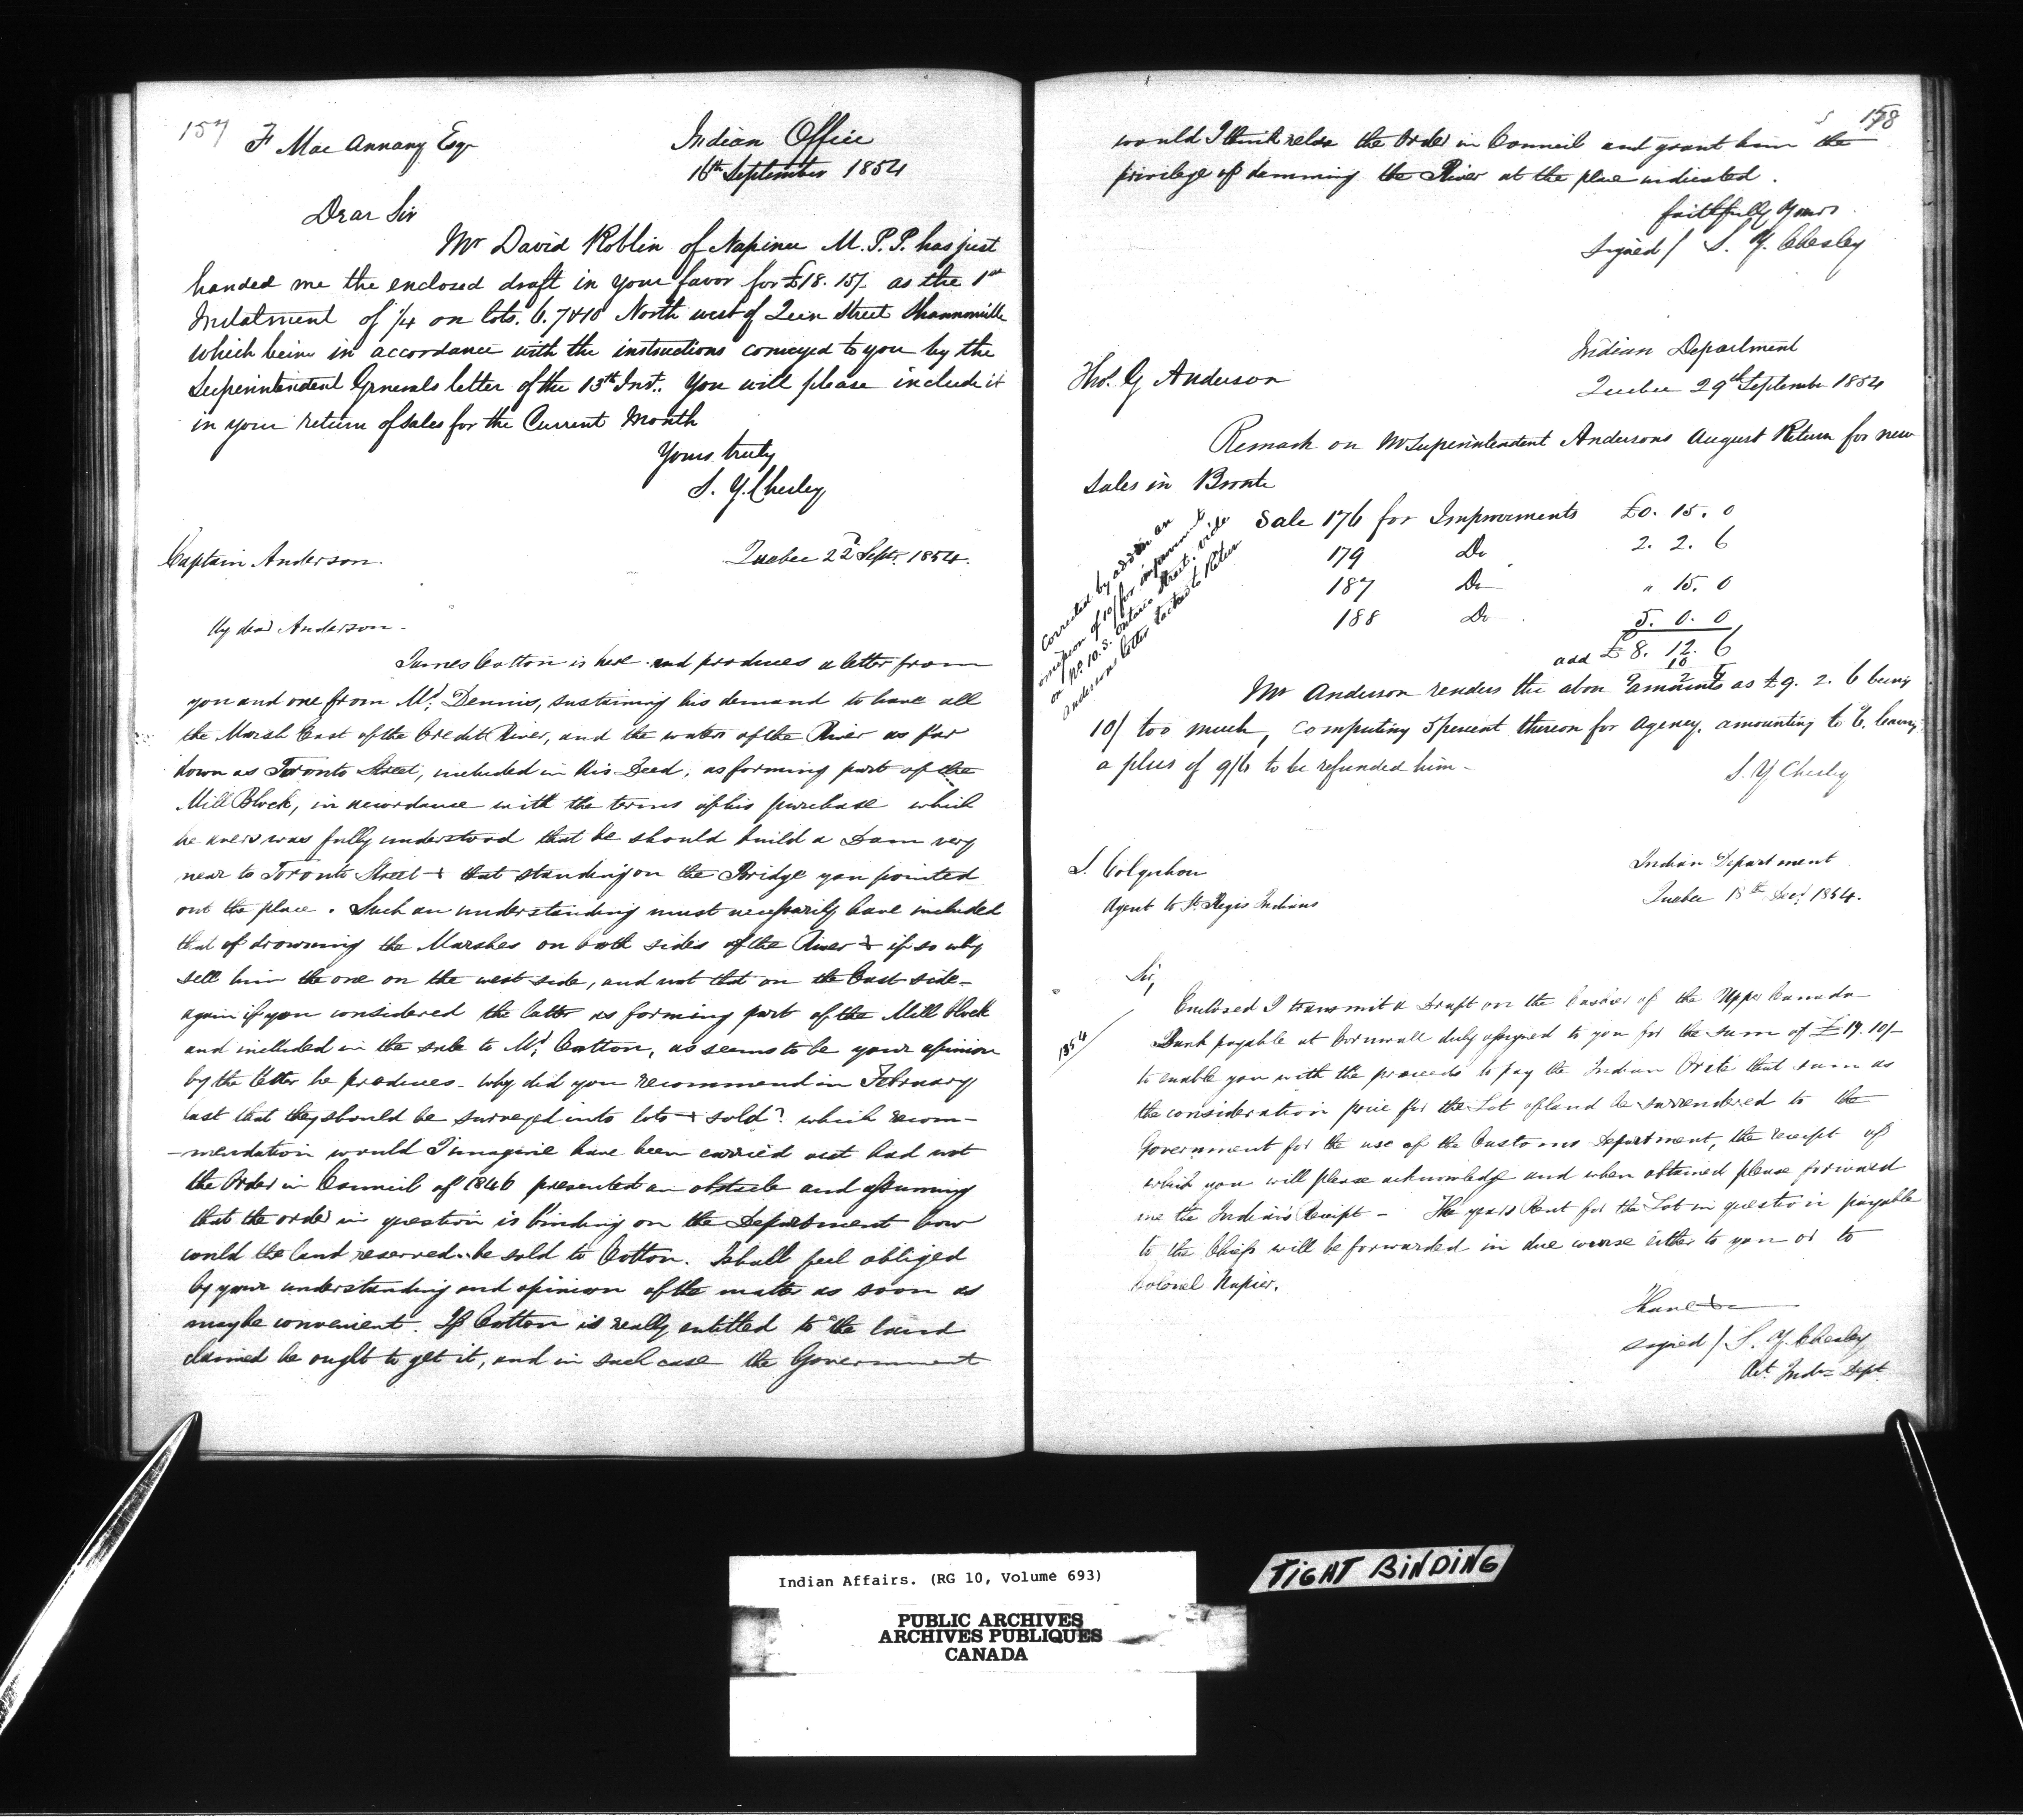 157
F Mac Annany Esqr
Indian Office
16th September 1854
Dear Sir
Mr David Roblin of Napinee M.P.P. has just
handed me the enclosed draft in your favor for £18.15/- as the 1st
Instalment of 1/4 on lots. 6. 7 & 10 North west of Queen Street Shannonville
which being in accordance with the instructions conveyed to you by the
Superintendent Generals letter of the 13th Inst. You will please include it
in your return of sales for the Current Month
Yours truly
S. Y. Chesley
Captain Anderson.
Quebec 22d Septr. 1854.
My dear Anderson.
James Cotton is here and produces a letter from
you and one from Mr. Dennis, sustaining his demand to have all
the Marsh East of the Credit River, and the waters of the River as far
down as Toronto Street, included in his Deed, as forming part of the
Mill Block, in accordance with the terms of his purchase which
he avers was fully understood that he should build a Dam very
near to Toronto Street & that standing on the Bridge you pointed
out the place. Such an understanding must necessarily have included
that of drowning the Marshes on both sides of the River & if so why
sell him the one on the west side, and not that on the East side-
again if you considered the latter as forming part of the Mill block
and included in the sale to Mr. Cotton, as seems to be your opinion
by the letter he produces - Why did you recommend in February
last that they should be surveyed into lots & sold? which recom-
-mendation would I imagine have been carried out had not
the Order in Council of 1846 presented an obstacle and assuming
that the order in question is binding on the Department how
could the land reserved be sold to Cotton. I shall feel obliged
by your understanding and opinion of the matter as soon as
may be convenient. If Cotton is really entitled to the land
claimed he ought to get it, and in such case the Government
158
would I think relax the Order in Council and grant him the
privilege of damming the River at the place indicated.
faithfully Yours
Signed / S. Y. Chesley
Thos. G Anderson
Indian Department
Quebec 29th September 1854
Remark on Mr Superintendent Andersons August Return for new
Sales in Bronte
Sale 176 for Improvements £0. 15. 0
179 Do 2. 2. 6
187 Do " 15. 0
188 Do 5. 0. 0
£8. 12. 6
add 10
Corrected by adding an
omission of 10/ for improvement
on No. 10. S. Ontario Street. vide
Andersons letter tacked to Return
Mr Anderson renders the above amounts as £9. 2. 6 being
10/ too much, computing 5 percent thereon for Agency, amounting to 6. leaving
a plus of 9/6 to be refunded him -
S. Y Chesley
S. Colquhoun
Agent to St. Regis Indians
Indian Department
Quebec 18th 1854.
Sir,
1854
Enclosed I transmit a Draft on the Cashier of the Upper Canada
Bank payable at Cornwall duly assigned to you for the sum of £19. 10/-
to enable you with the proceeds to pay the Indian that sum as
the consideration price for the Lot of land he surrendered to the
Government for the use of the Customs Department, the receipt of
which you will please acknowledge and when obtained please forward
me the Indian's Receipt - The years Rent for the Lot in question payable
to the Chiefs will be forwarded in due course either to you or to
Colonel Napier.
I have &c
signed / S. Y. Chesley
Act. Indn Dept
Indian Affairs. (RG 10, Volume 693)
PUBLIC ARCHIVES
ARCHIVES PUBLIQUES
CANADA
TIGHT BINDING